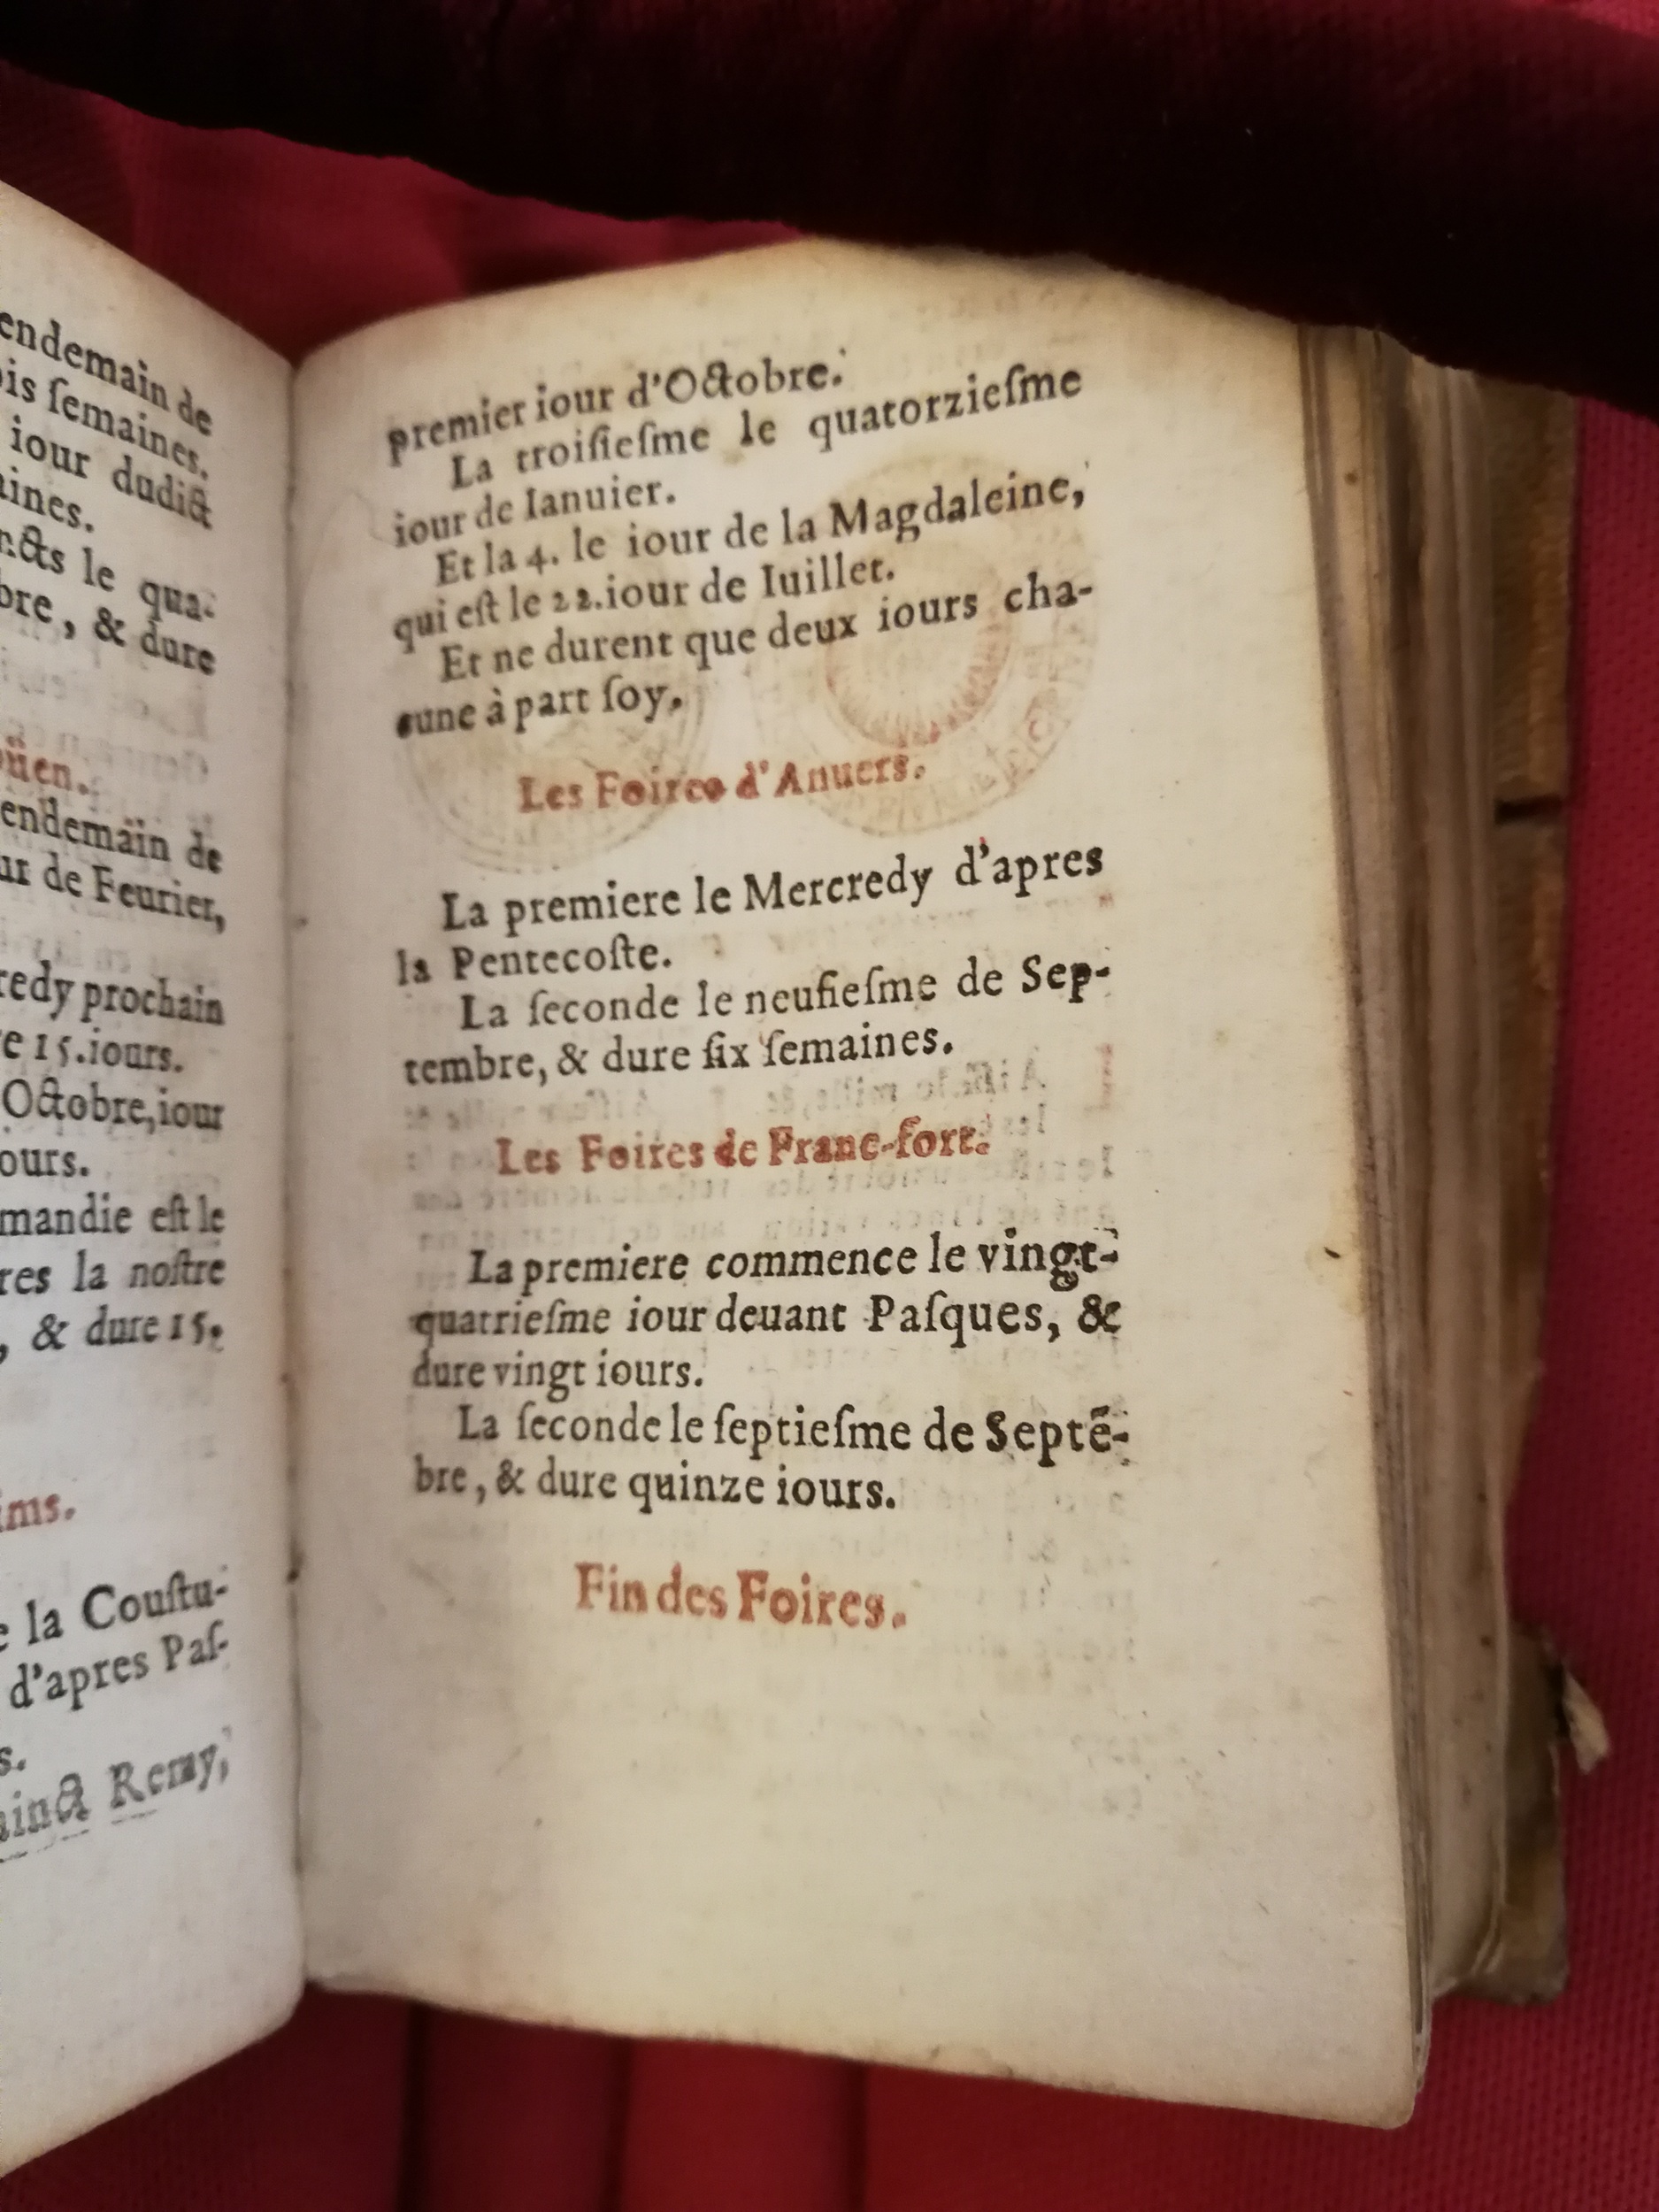 endemain de
ſemaines.
iour dudict
le qua-
& dure
endemain de
de Feurier,
prochain
15.iours.
Octobre,iour
eſt le
la noſtre
, & dure 15.
la Couſtu-
d'apres Paſ-
Remy,
premier iour d'Octobre.
La troiſieſme le quatorzieſme
iour de Ianuier.
Et la 4. le iour de la Magdaleine,
qui eſt le 22.iour de Iuillet.
Et ne durent que deux iours cha-
cune à part ſoy.
Les Foires d'Anuers.
La premiere le Mercredy d'apres
la Pentecoſte.
La ſeconde le neufieſme de Sep-
tembre, & dure ſix ſemaines.
Les Foires de Franc-fort.
La premiere commence le vingt-
quatrieſme iour deuant Paſques, &
dure vingt iours.
La ſeconde le ſeptieſme de Septẽ-
bre, & dure quinze iours.
Fin des Foires.